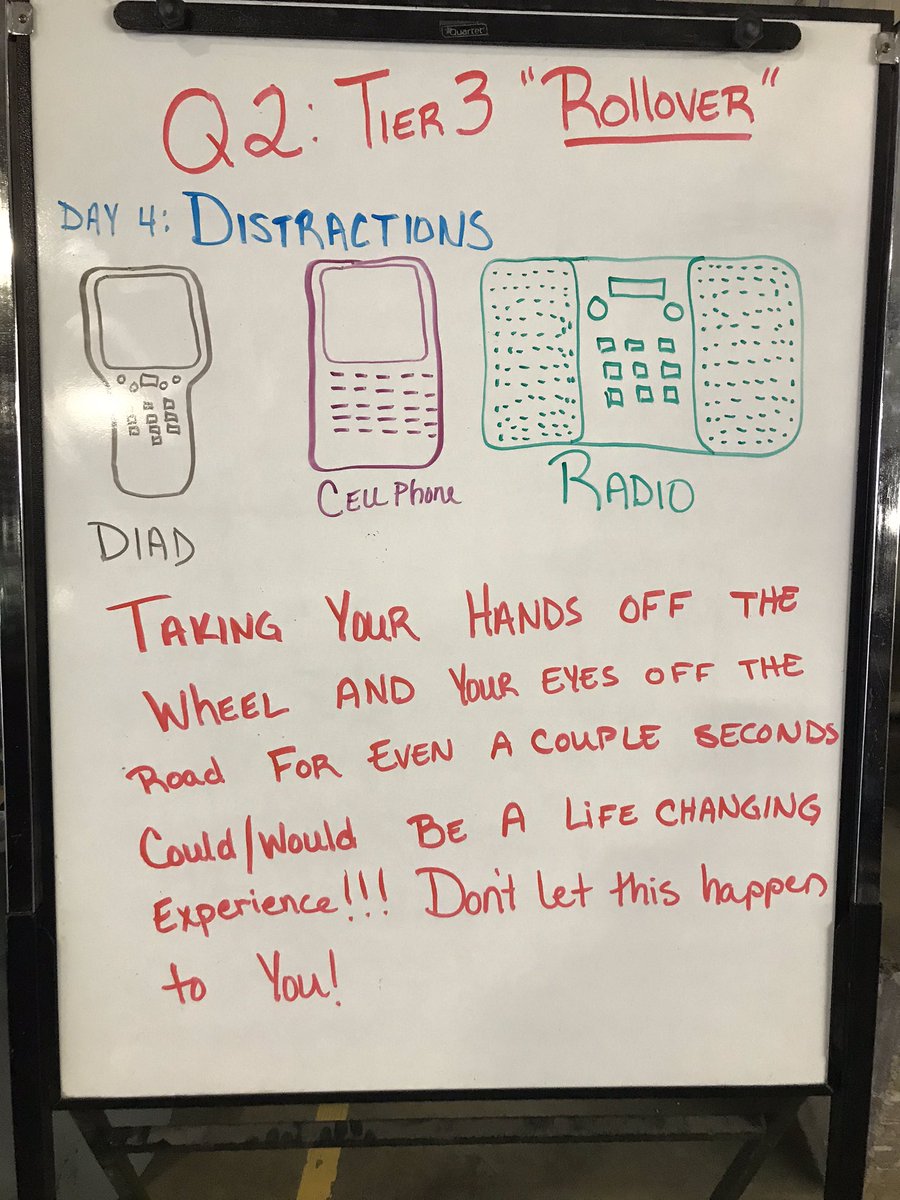 Quartet
Q2: TIER 3 "ROLLOVER"
DAY 4: DISTRACTIONS
DIAD
CELL Phone
RADIO
TAKING YOUR HANDS OFF THE
WHEEL AND YOUR EYES OFF THE
Road FOR EVEN A COUPLE SECONDS
Could/Would BE A LIFE CHANGING
Experience!!! Don't let this happen
to You!